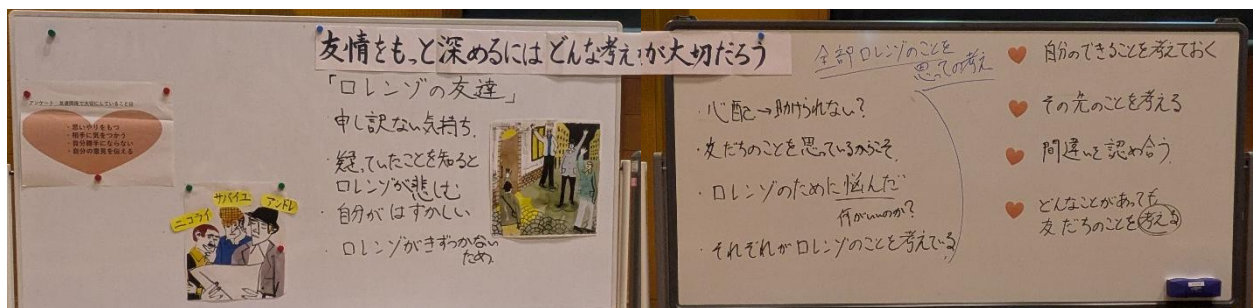 友情をもっと深めるにはどんな考えが大切だろう
アンケート 友達関係で大切にしていることは
・思いやりをもつ
・相手に気をつかう
・自分勝手にならない
・自分の意見を伝える
ニコライ
サバイユ
アンドレ
「ロレンゾの友達」
・申し訳ない気持ち.
・疑っていたことを知ると
ロレンゾが悲しむ
・自分がはずかしい
・ロレンゾがきずつかない
ため.
全部ロレンゾのことを
思っての考え
・心配→助けられない?
・友だちのことを思っているからこそ.
・ロレンゾのために悩んだ
何がいいのか?
・それぞれがロレンゾのことを考えている
自分のできることを考えておく
その先のことを考える
間違いを認め合う.
どんなことがあっても
友だちのことを考える